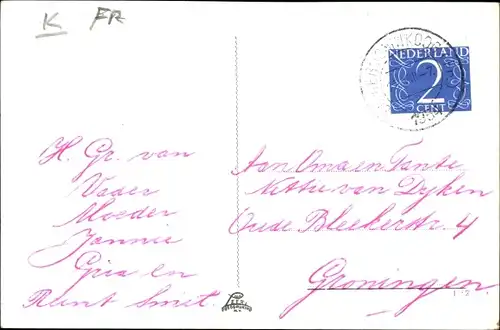 K FR
NEDERLAND
2
CENT
H. Gr. van
Vader
Moeder
Jannie
Gria en
Reint Smit.
Aan Oma en Tante
Nettie van Dyken
Oude Bleekerstr. 4
Groningen.